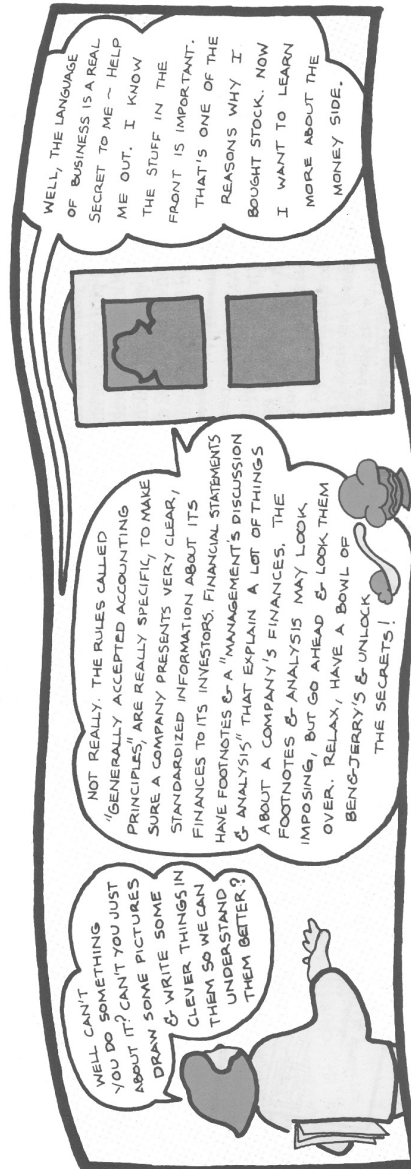 WELL CAN'T
YOU DO SOMETHING
ABOUT IT? CAN'T YOU JUST
DRAW SOME PICTURES
& WRITE SOME
CLEVER THINGS IN
THEM SO WE CAN
UNDERSTAND
THEM BETTER?
NOT REALLY. THE RULES CALLED
"GENERALLY ACCEPTED ACCOUNTING
PRINCIPLES", ARE REALLY SPECIFIC, TO MAKE
SURE A COMPANY PRESENTS VERY CLEAR,
STANDARDIZED INFORMATION ABOUT ITS
FINANCES TO ITS INVESTORS. FINANCIAL STATEMENTS
HAVE FOOTNOTES & A "MANAGEMENT'S DISCUSSION
& ANALYSIS" THAT EXPLAIN A LOT OF THINGS
ABOUT A COMPANY'S FINANCES. THE
FOOTNOTES & ANALYSIS MAY LOOK
IMPOSING, BUT GO AHEAD & LOOK THEM
OVER. RELAX, HAVE A BOWL OF
BEN&JERRY'S & UNLOCK
THE SECRETS!
WELL, THE LANGUAGE
OF BUSINESS IS A REAL
SECRET TO ME ~ HELP
ME OUT. I KNOW
THE STUFF IN THE
FRONT IS IMPORTANT.
THAT'S ONE OF THE
REASONS WHY I
BOUGHT STOCK. NOW
I WANT TO LEARN
MORE ABOUT THE
MONEY SIDE.